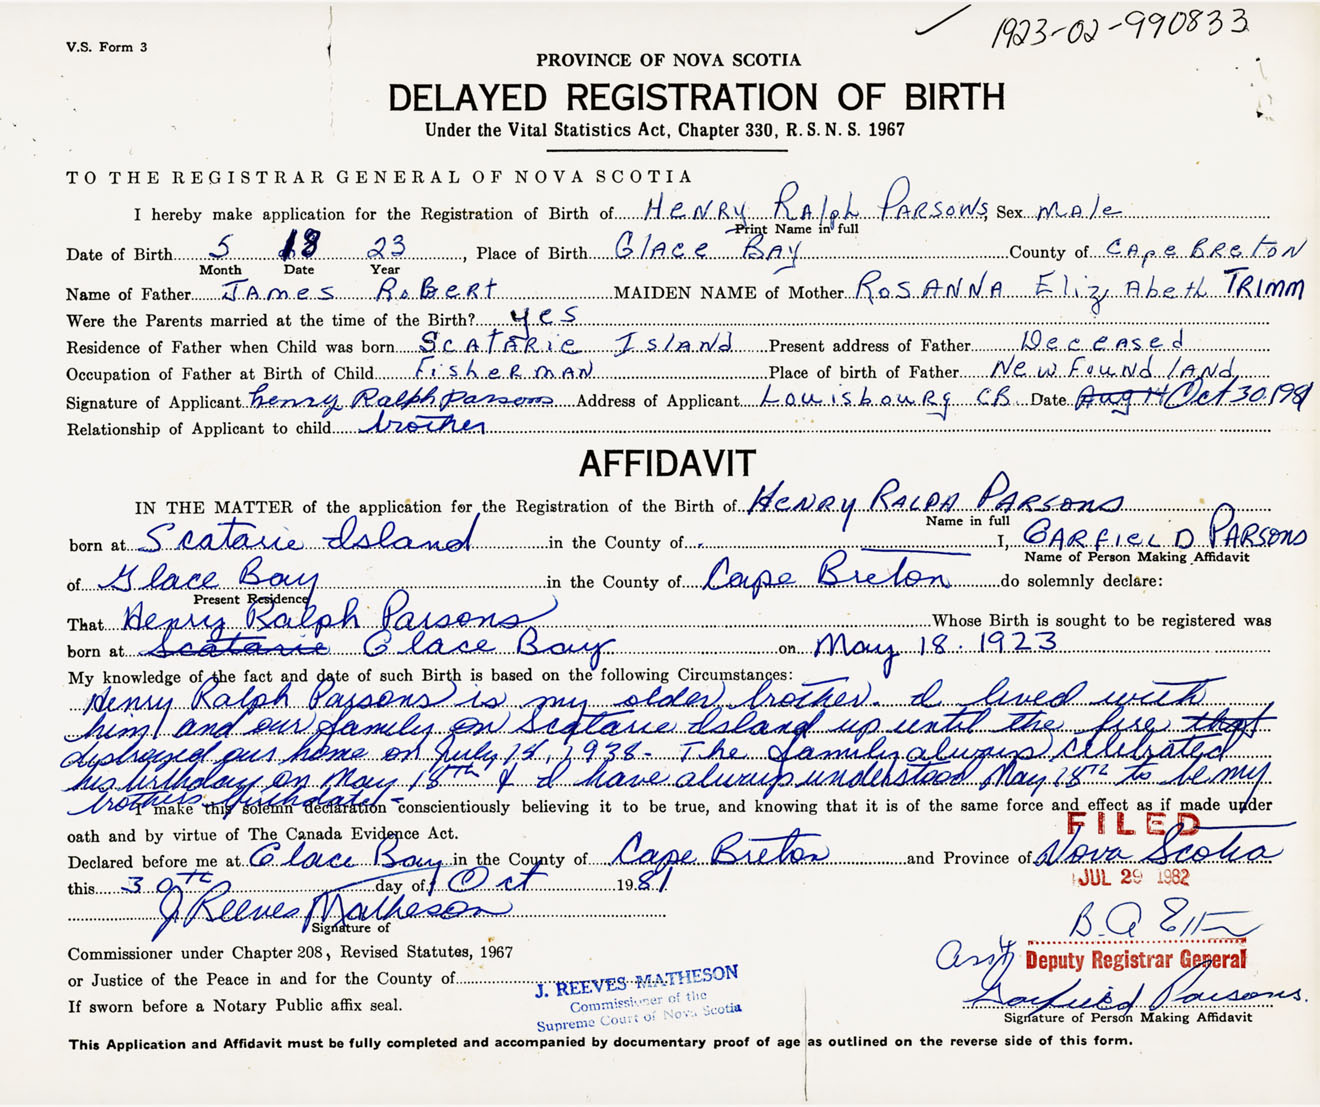 1923-02-990833
V.S. Form 3
PROVINCE OF NOVA SCOTIA
DELAYED REGISTRATION OF BIRTH
Under the Vital Statistics Act, Chapter 330, R.S.N.S. 1967
TO THE REGISTRAR GENERAL OF NOVA SCOTIA
I hereby make application for the Registration of Birth of Henry Ralph Parsons, Sex male
Print Name in full
Date of Birth 5 18 23, Place of Birth Glace Bay County of Cape Breton
Month Date Year
Name of Father James Robert MAIDEN NAME of Mother Rosanna Elizabeth TRIMM
Were the Parents married at the time of the Birth? yes
Residence of Father when Child was born Scatarie Island Present address of Father Deceased
Occupation of Father at Birth of Child Fisherman Place of birth of Father Newfoundland
Signature of Applicant henry Ralph parsons Address of Applicant Louisbourg CB. Date Aug 14 Oct 30.1981
Relationship of Applicant to child brother
AFFIDAVIT
IN THE MATTER of the application for the Registration of the Birth of Henry Ralph Parsons
Name in full
born at Scatarie Island in the County of I, GARFIELD PARSONS
Name of Person Making Affidavit
of Glace Bay in the County of Cape Breton do solemnly declare:
Present Residence
That Henry Ralph Parsons Whose Birth is sought to be registered was
born at Scatarie Glace Bay on May 18. 1923
My knowledge of the fact and date of such Birth is based on the following Circumstances:
Henry Ralph Parsons is my older brother. I lived with
him and our family on Scatarie Island up until the fire that
destroyed our home on July 1938- The family always celebrated
his birthday on May 18th & I have always understood May 18th to be my
brothers birthdate-
I make this solemn declaration conscientiously believing it to be true, and knowing that it is of the same force and effect as if made under
oath and by virtue of The Canada Evidence Act.
FILED
Declared before me at Glace Bay in the County of Cape Breton and Province of Nova Scotia
this 30th day of Oct 1981
JUL 29 1982
J Reeves Matheson
Signature of
Commissioner under Chapter 208, Revised Statutes, 1967
Deputy Registrar General
or Justice of the Peace in and for the County of
J. REEVES MATHESON
Commissioner of the
Supreme Court of Nova Scotia
Garfield Parsons.
If sworn before a Notary Public affix seal.
Signature of Person Making Affidavit
This Application and Affidavit must be fully completed and accompanied by documentary proof of age as outlined on the reverse side of this form.